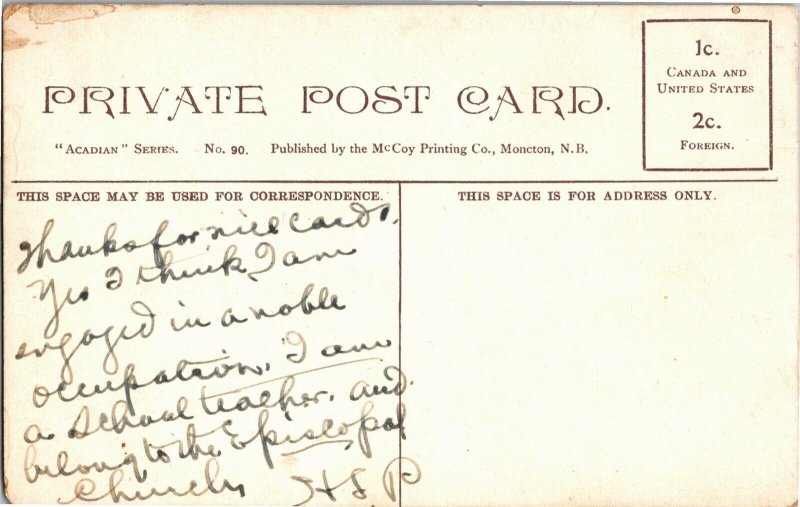 1c.
CANADA AND
UNITED STATES
2c.
FOREIGN.
PRIVATE POST CARD.
"ACADIAN" SERIES. No. 90. Published by the McCoy Printing Co., Moncton, N.B.
THIS SPACE MAY BE USED FOR CORRESPONDENCE.
THIS SPACE IS FOR ADDRESS ONLY.
Thanks for nice cards.
Yes I think I am
engaged in a noble
occupation. I am
a school teacher. and
belong to the Episcopal
Church, H S P